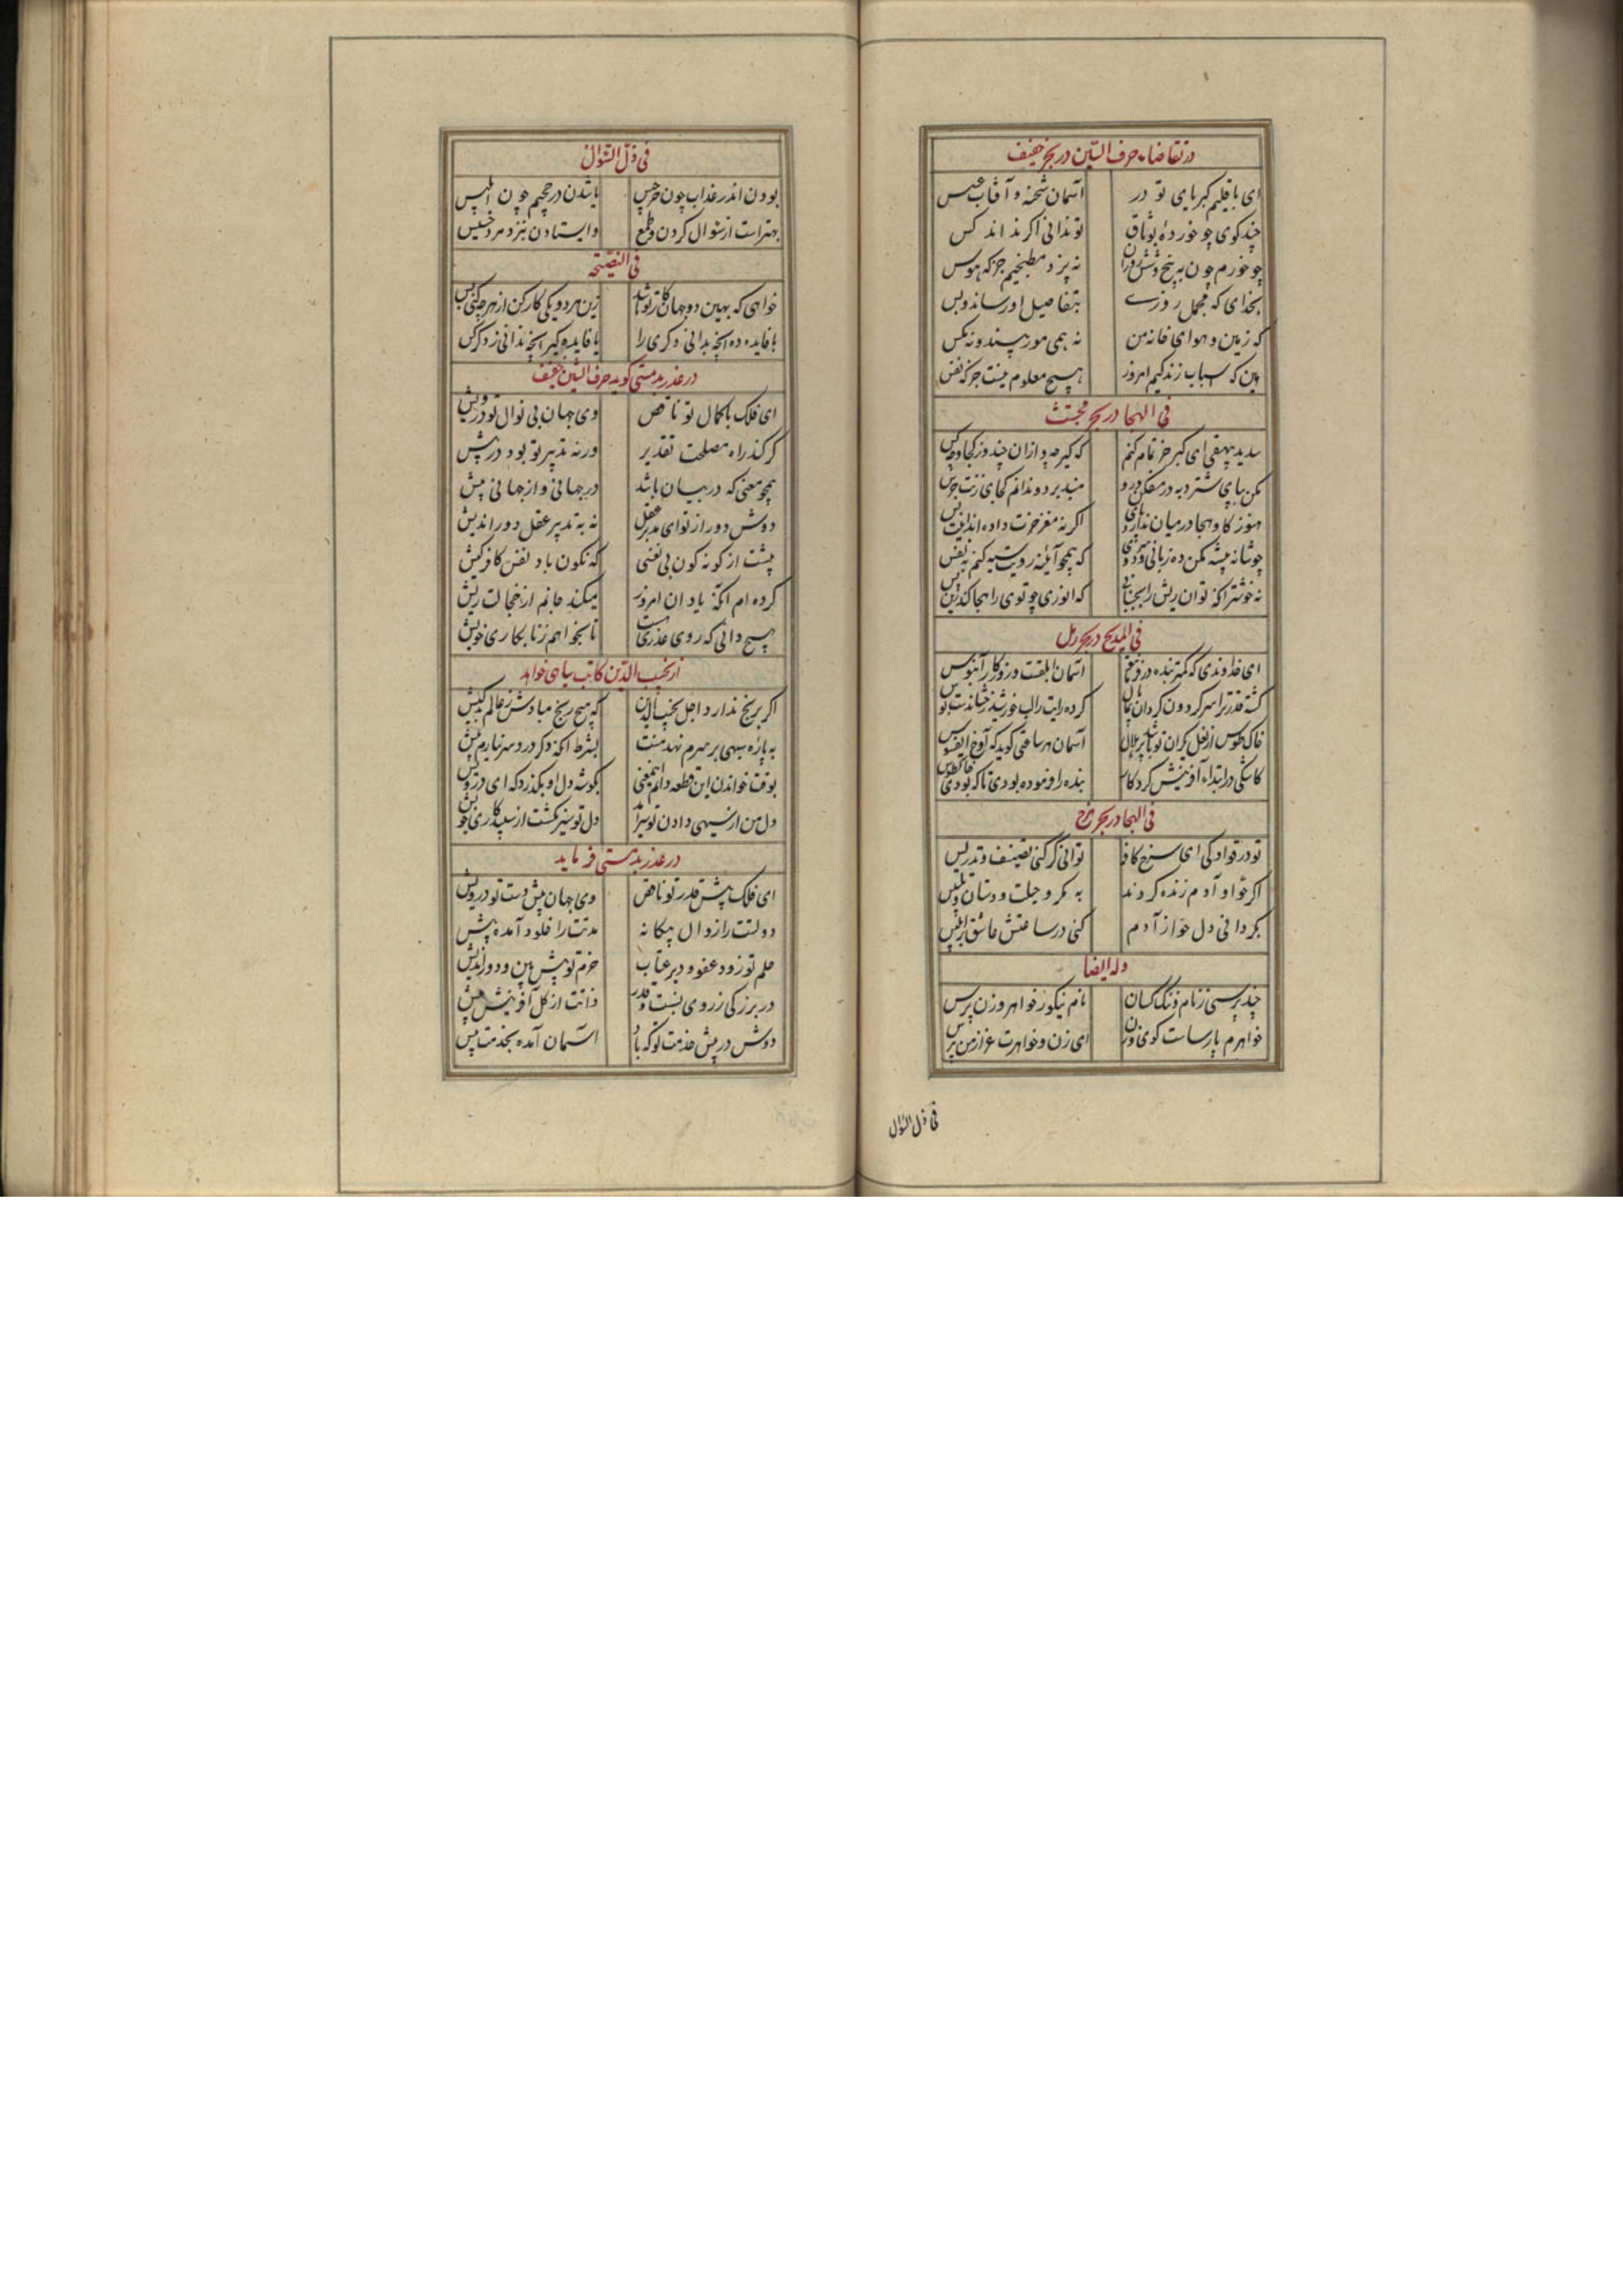 در تقاضاء حرف السین در بحر خفیف
ای باقلیم کبریای تو در آسمان شحنه و آفتاب عسس
چند کوی چو خوردهٔ بوثاق تو ندانی اگر نداند کس
چو خورم چون به پنج و شش نه پزد مطبخیم جز که هوس
بخدای که مجمل روزی بتفاصیل او رساند و بس
که زمین و هوای خانه من نه همی مور بیند و نه مکس
هین که اسباب زندکیم امروز هیچ معلوم نیست جز که نفس
فی الهجا در بحر مجتث
سدید بیهقی ای کیر خر تمام کنم که کیر
مکن بپای شتر
هنوز کاو هجا در میان اگر نه مغز خرت داده اند
چو شانه پیشه مکن ده زبانی و که همچو آینه رویت سیه کنم به نفس
نه خوشتر آنکه توان ریش را که انوری چو توی را هجا کند
فی المدیح در بحر رمل
ای خداوندی که کمتر بنده در آسمان ابلقت و روزکار آبنوس
کشته قدر ترا سر کردون کردان کرده رایت را لب خورشید رخشان
خاک طوس از نعل یکران تو آسمان هر ساعتی کوید که آوخ ای فسوس
کاشکی در ابتداء آفرینش کردکار بنده را فرموده بودی تا که بودی خاک طوس
فی الهجا در بحر هزج
تو در قوادکی ای سرخ کافر توانی کر کنی تصنیف و تدریس
اکر حوا و آدم زنده کردند به مکر و حیلت و دستان و تلبیس
بکردانی دل حوا ز آدم کنی در ساعتش عاشق بر ابلیس
وله ایضا
چند پرسی ز نام و ننک کسان نام نیکو ز خواهر و زن پرس
خواهرم پارسات کوی و زن ای زن و خواهرت غر از من پرس
فی ذل السؤال
فی ذل السؤال
بودن اندر عذاب چون جرجیس یا شدن در جحیم چون ابلیس
بهتر است از سؤال کردن و طمع و ایستادن بنزد مرد خسیس
فی النصیحة
خواهی که بهین دو جهان کار تو باشد زین هر دو یکی کار کن از هر چه کنی بس
یا فایده ده آنچه بدانی دکری را یا فایده کیر آنچه ندانی ز دکر کس
در عذر بدمستی کوید حرف الشین خفیف
ای فلک با کمال تو ناقص وی جهان بی نوال تو درویش
کر کند راه مصلحت تقدیر ور نه تدبیر تو بود در پیش
همچو معنی که در بیان باشد در جهانی و از جهانی بیش
دوش دور از تو ای مدبر عقل نه به تدبیر عقل دور اندیش
پشت از کونه کون بی نفسی که نکون باد نفس کافر کیش
کرده ام آنکه یاد آن امروز میکند جانم از خجالت ریش
هیچ دانی که روی عذری هست تا بخواهم ز نابکاری خویش
از نجیب الدین کاتب سیاهی خواهد
اکر برنج ندارد اجل نجیب الدین که هیچ رنج مبادش ز عالم بدکیش
به پاره سیهی بر سرم نهد منت بشرط آنکه دکر درد سر نیارم پیش
بوقت خواندن این قطعه دانم این معنی بکوشه دل او بکذرد که ای درویش
دل من از سیهی دادن تو سیر آمد دل تو سیر نکشت از سپیدکاری خویش
در عذر بدمستی فرماید
ای فلک پیش قدر تو ناقص وی جهان پیش دست تو درویش
دولتت را زوال بیکانه مدتت را خلود آمده پیش
حلم تو زود عفو و دیر عتاب حزم تو پیش بین و دوراندیش
در بزرکی ز روی نسبت و قدر ذاتت از کل آفرینش بیش
دوش در پیش خدمت تو که باد آسمان آمده بخدمت پیش